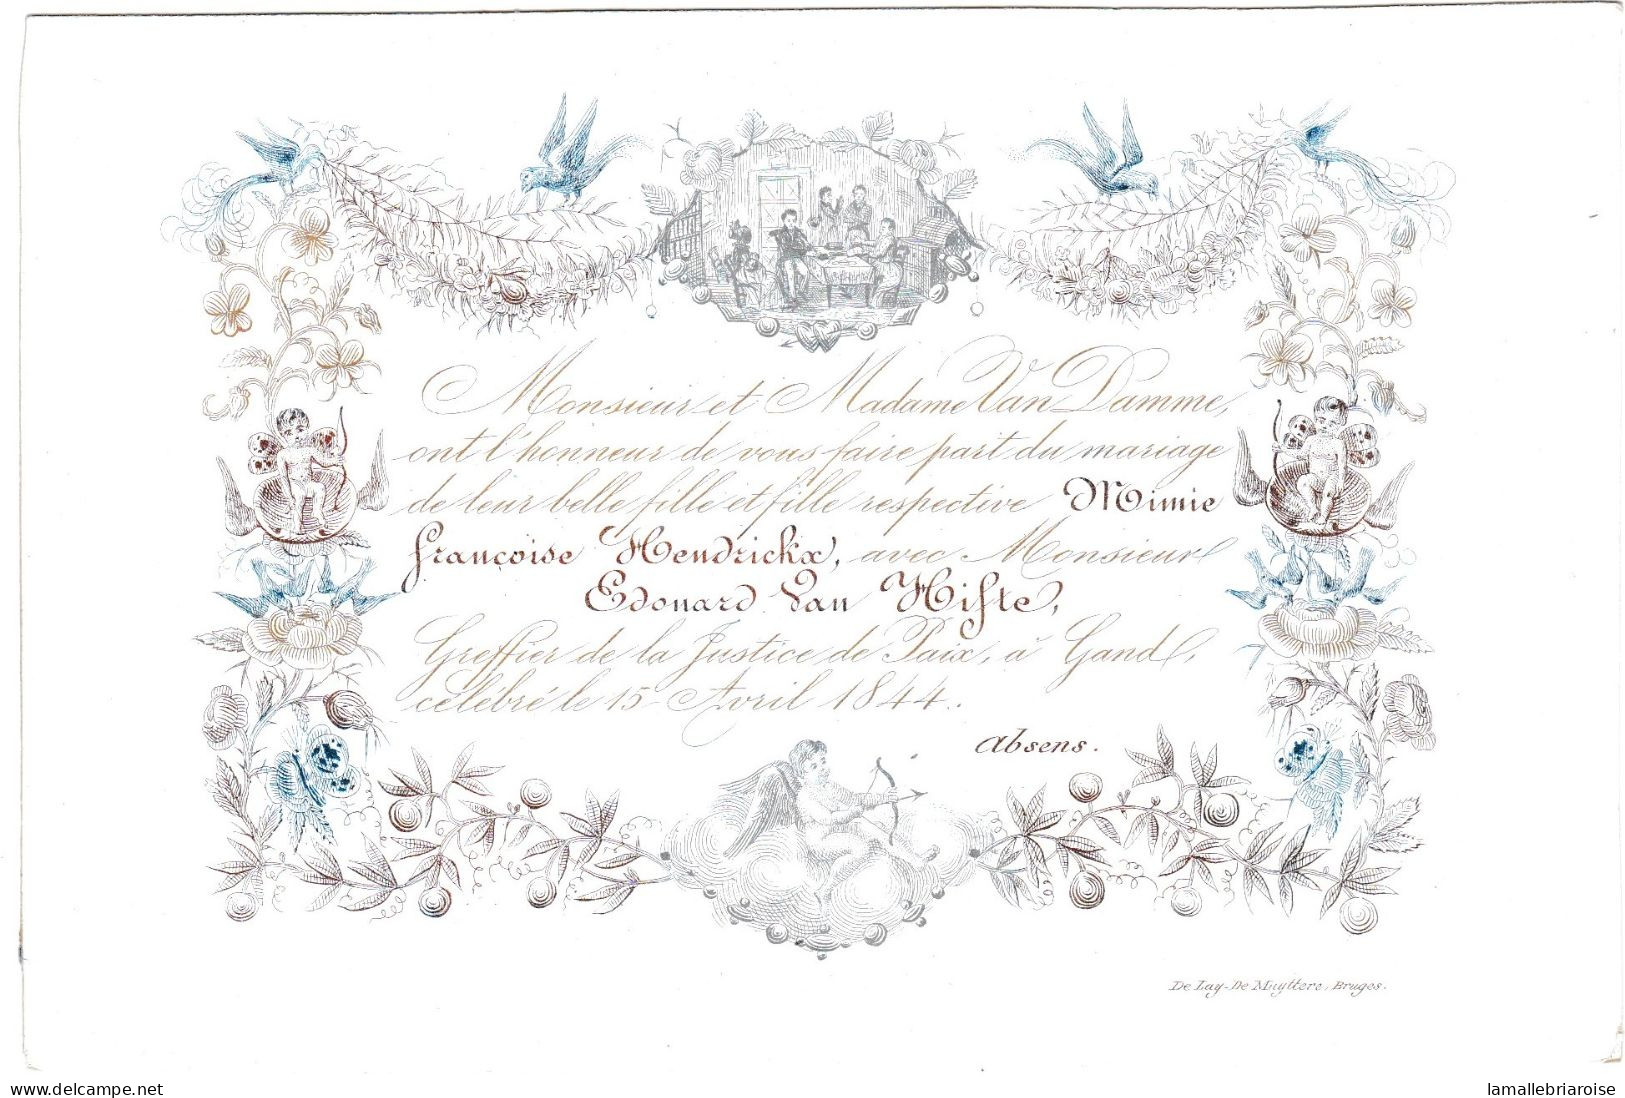 Monsieur et Madame Van Damme,
ont l'honneur de vous faire part du mariage
de leur belle fille et fille respective Mimie
Françoise Hendrickx, avec Monsieur
Edouard Van Hifte,
Greffier de la Justice de Paix, à Gand,
célébré le 15 Avril 1844.
Absens.
De Lay-De Muyttere, Bruges.
www.delcampe.net
lamallebriaroise